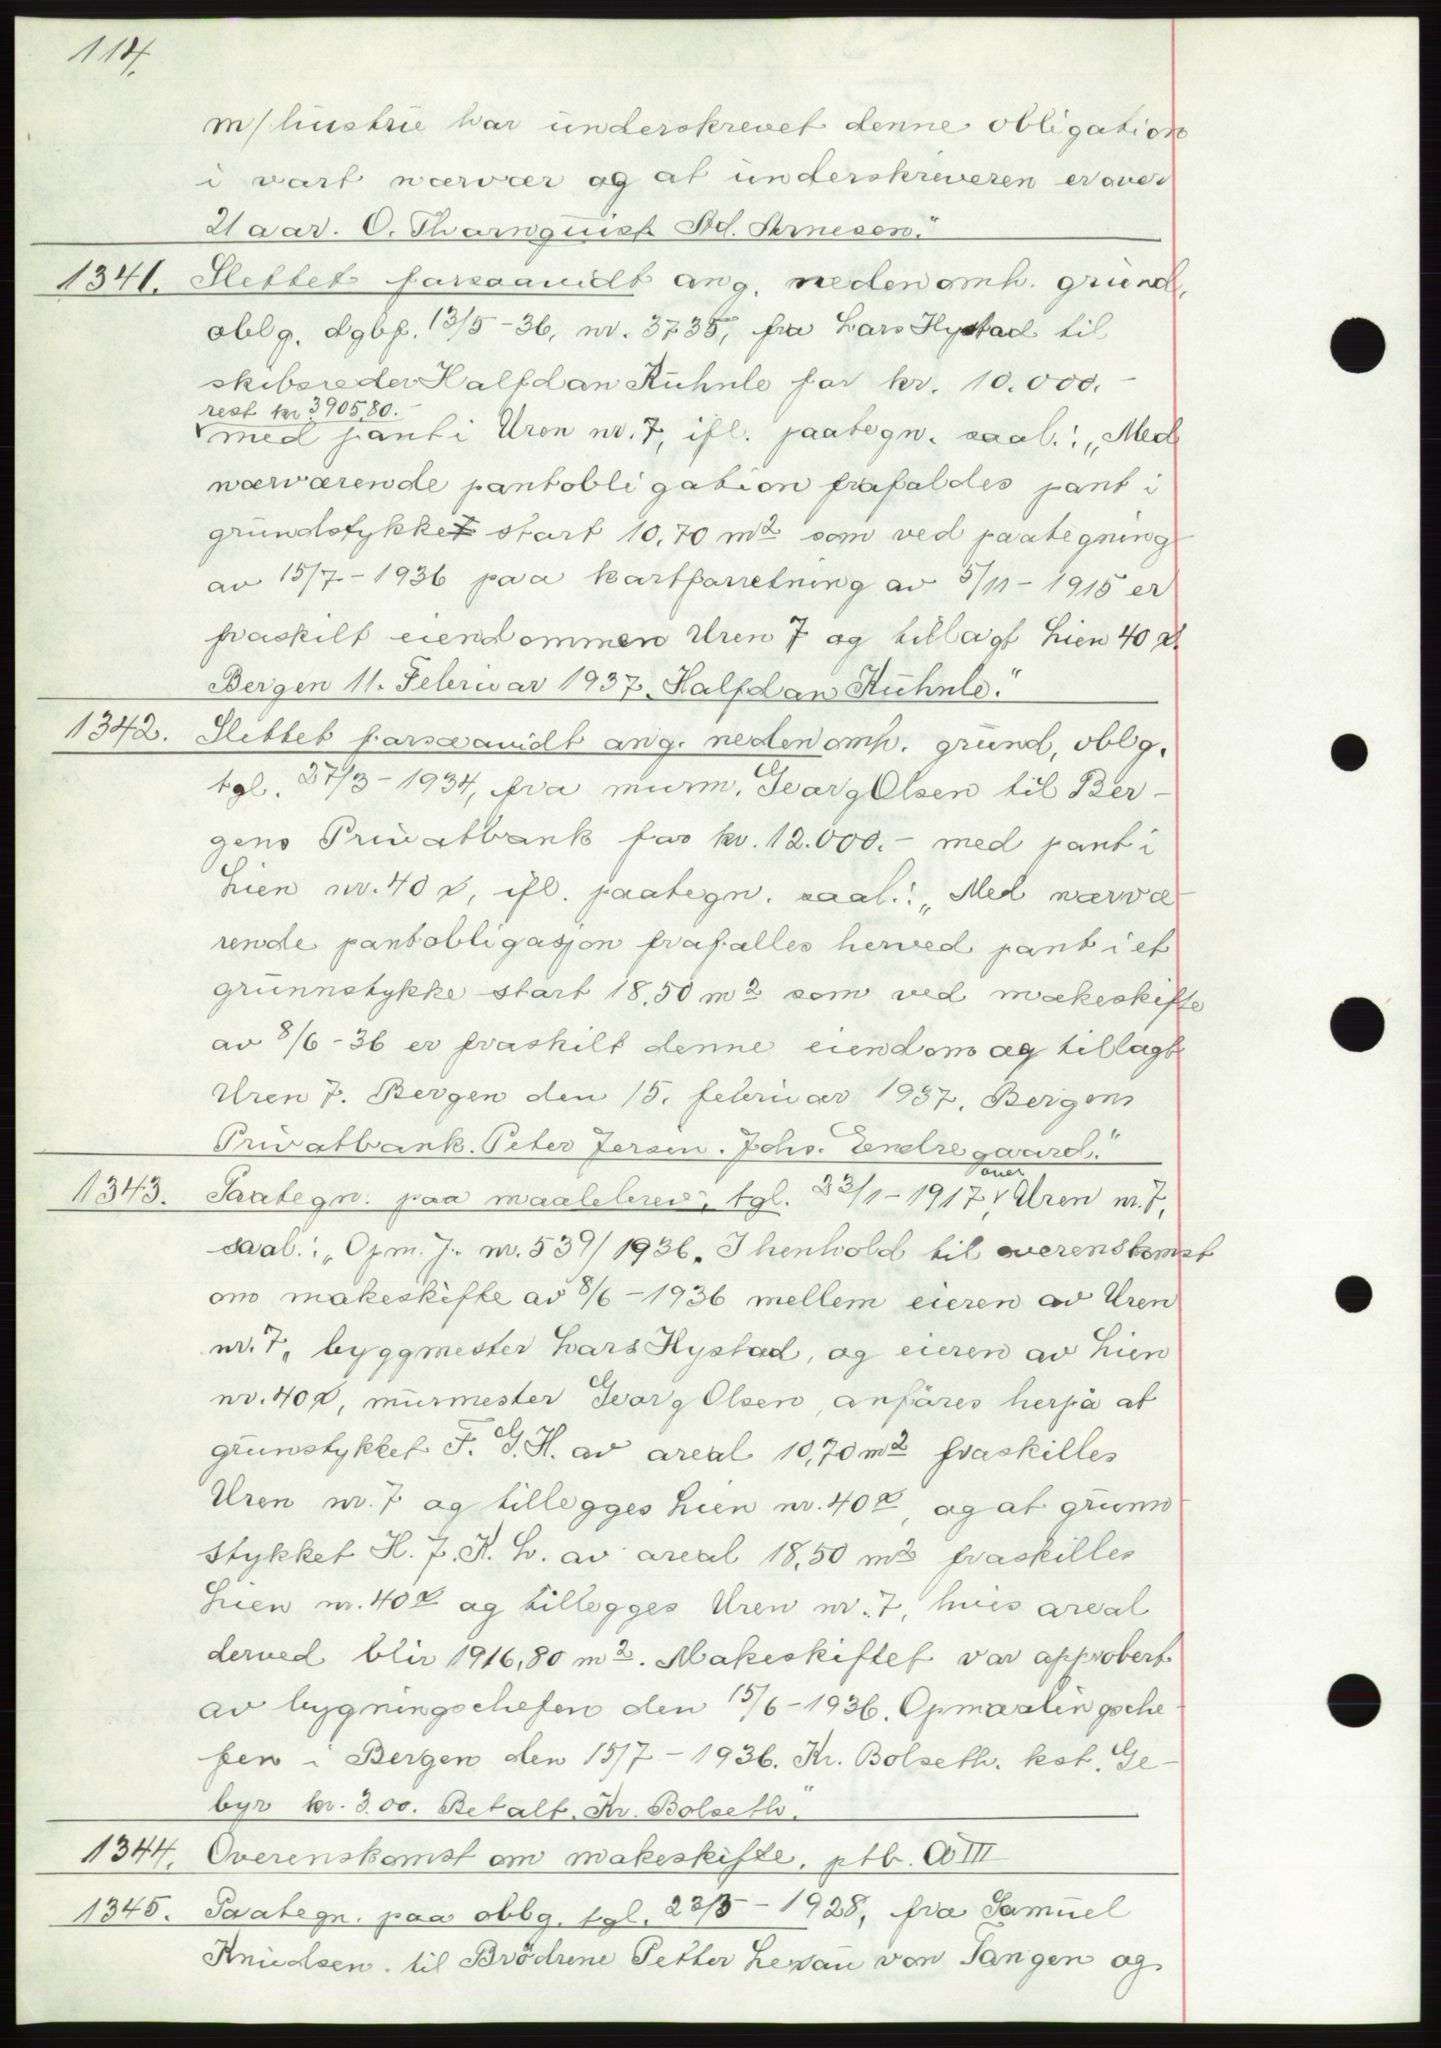 114.
m/hustrue har underskrevet denne obligation
i vort nærvær og at underskriveren er over
21 aar. O. Thornquist Ad. Arnesen."
1341. Slettet forsaavidt ang. nedenomh. grund,
oblg. dgbf. 13/5-36, nr. 3735, fra Lars Hystad til
skibsreder Halfdan Kuhnle for kr. 10.000.-
rest kr 3905,80.-
med pant i Uren nr. 7, ifl. paategn. saal.: "Med
nærværende pantobligation frafaldes pant i
grundstykket stort 10,70 m2 som ved paategning
av 15/7-1936 paa kartforretning av 5/11-1915 er
fraskilt eiendommen Uren 7 og tillagt Lien 40 a.
Bergen 11. Februar 1937. Halfdan Kuhnle."
1342. Slettet forsaavidt ang. nedenomh. grund, oblg.
tgl. 27/3-1934, fra murm. Georg Olsen til Ber-
gens Privatbank for kr. 12.000.- med pant i
Lien nr. 40 a, ifl. paategn. saal.: "Med nærvæ-
rende pantobligasjon frafalles herved pant i et
grunnstykke stort 18,50 m2 som ved makeskifte
av 8/6-36 er fraskilt denne eiendom og tillagt
Uren 7. Bergen den 15. februar 1937. Bergens
Privatbank. Peter Jersin. Johs. Endregaard."
1343. Paategn. paa maalebrev, tgl. 23/1-1917, over Uren nr. 7,
saal.: "Opm. J. nr. 539/1936. I henhold til overenskomst
om makeskifte av 8/6-1936 mellem eieren av Uren
nr. 7, byggmester Lars Hystad, og eieren av Lien
nr. 40a, murmester Georg Olsen, anføres herpå at
grunstykket F. G. H. av areal 10,70 m2 fraskilles
Uren nr. 7 og tillegges Lien nr. 40a, og at grunn-
stykket H. J. K. L. av areal 18,50 m2 fraskilles
Lien nr. 40a og tillegges Uren nr. 7, hvis areal
derved blir 1916,80 m2. Makeskiftet var approbert
av bygningschefen den 15/6-1936. Opmaalingsche-
fen i Bergen den 15/7-1936. Kr. Bolseth. kst. Ge-
byr kr. 3.00. Betalt. Kr. Bolseth."
1344. Overenskomst om makeskifte. ptb. A III
1345. Paategn. paa oblg. tgl. 22/5-1928, fra Samuel
Knudsen til Brödrene Petter Lexau von Tangen og